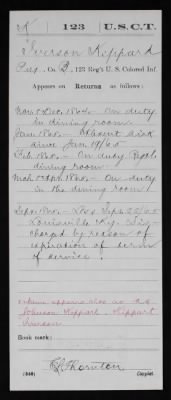 K | 123 | U.S.C.T.
Iverson Kippard
Pvt., Co. B, 123 Reg't U. S. Colored Inf.
Appears on Returns as follows:
Nov & Dec. 1864. On duty
in dining room
Jan. 1865. Absent sick
since Jan 19/65
Feb. 1865. On duty Post
dining room
Mch & Apr. 1865. On duty
in the dining room
Sept. 1865. Loss Sept.
Louisville Ky. Dis-
charged by reason of
expiration of term
of service.
name appears also as
Johnson Kippard
Book mark:
Thornton
(546) Copyist.